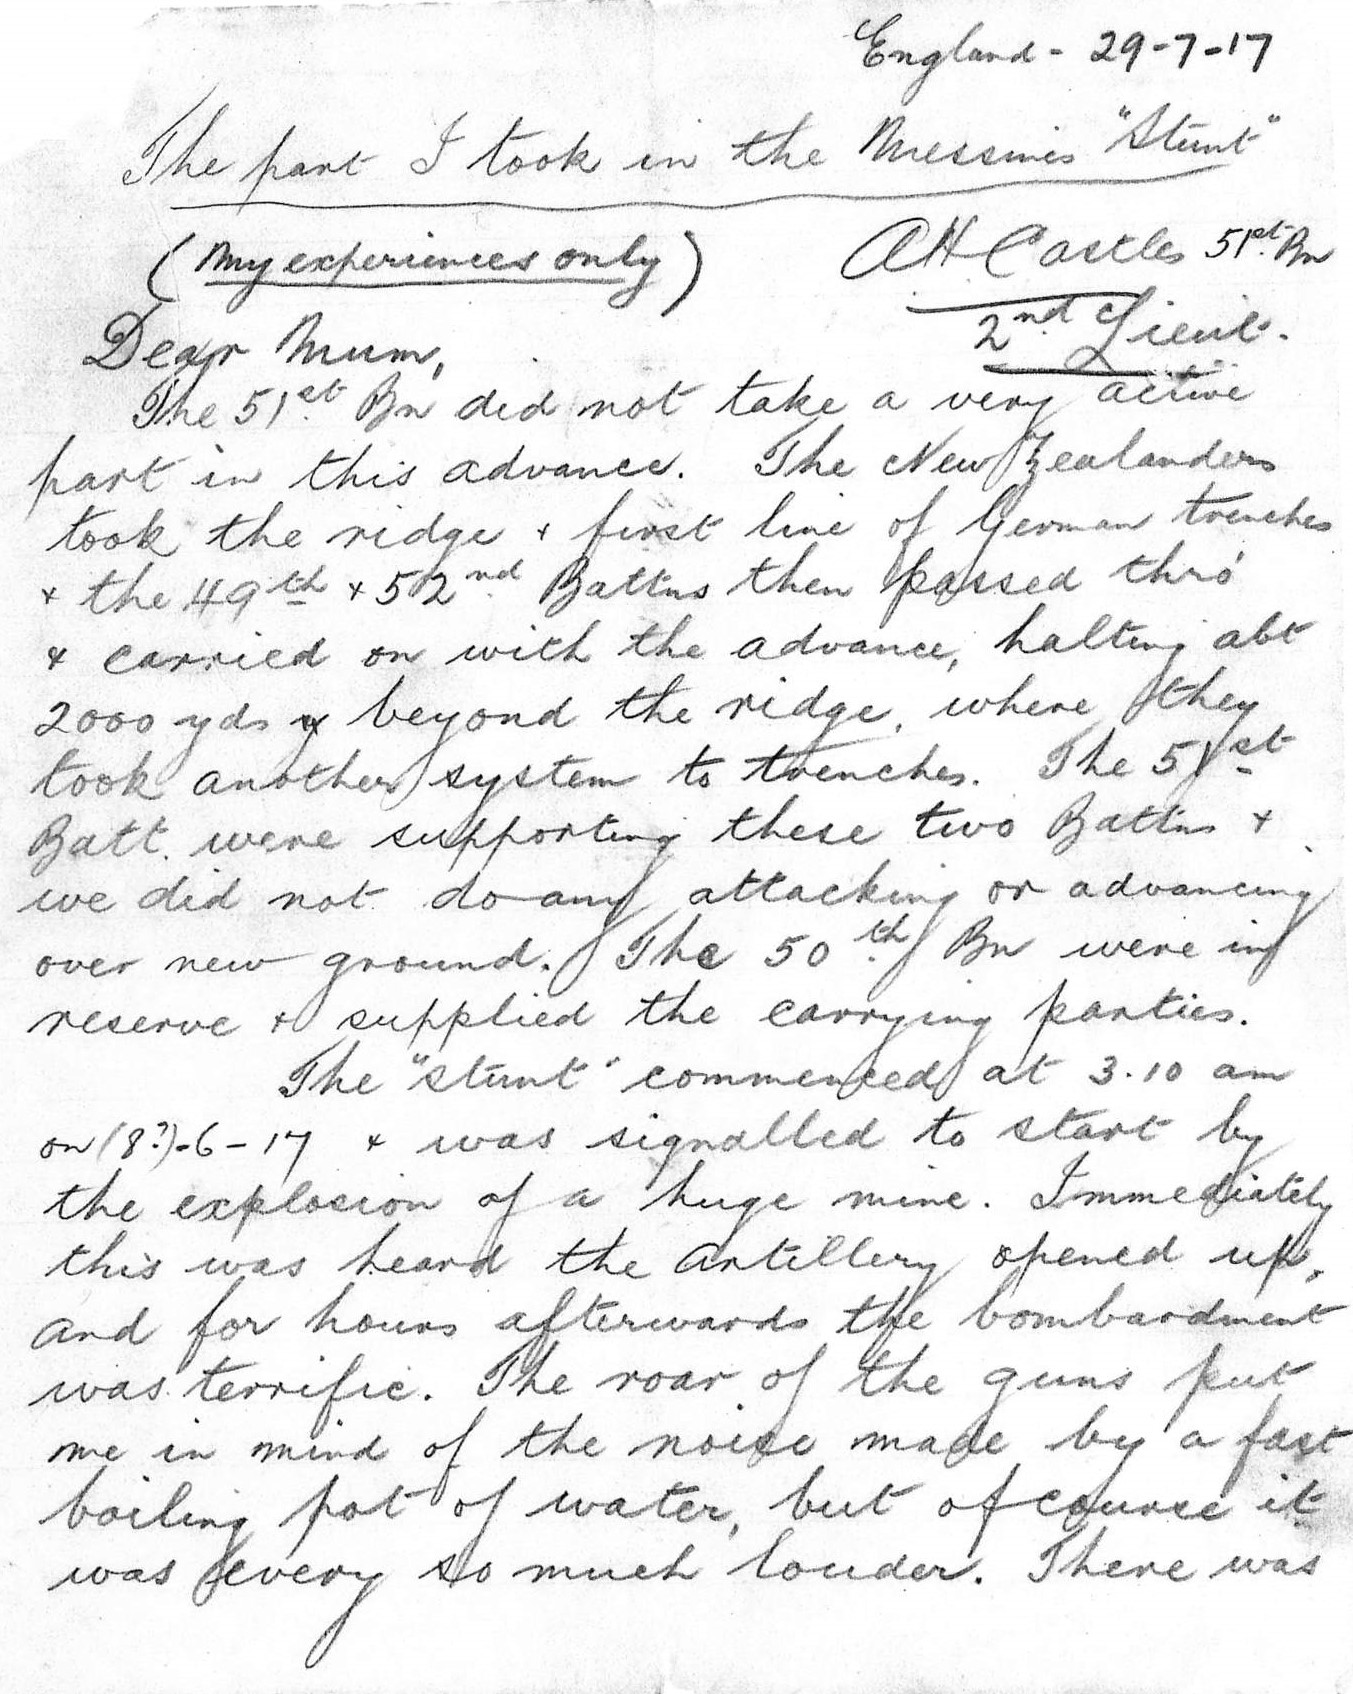 England - 29-7-17
The part I took in the Messines "Stunt"
(My experiences only)
AH Castles 51st Bn
2nd Lieut.
Dear Mum,
The 51st Bn did not take a very active
part in this advance. The New Zealanders
took the ridge & first line of German trenches
& the 49th & 52nd Battns then passed thro'
& carried on with the advance, halting abt
2000 yds beyond the ridge, where they
took another system to trenches. The 51st
Batt. were supporting these two Battns &
we did not do any attacking or advancing
over new ground. The 50th Bn were in
reserve & supplied the carrying parties.
The "stunt" commenced at 3.10 am
on (8?)-6-17 & was signalled to start by
the explosion of a huge mine. Immediately
this was heard the artillery opened up,
and for hours afterwards the bombardment
was terrific. The roar of the guns put
me in mind of the noise made by a fast
boiling pot of water, but of course it
was every so much louder. There was